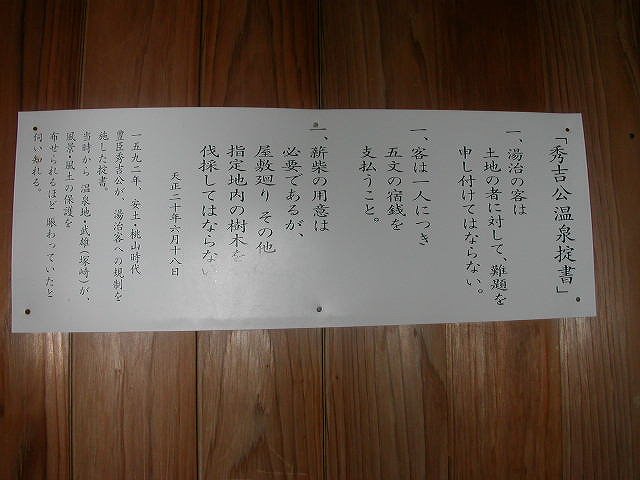 「秀吉公温泉掟書」
一、湯治の客は
土地の者に対して、難題を
申し付けてはならない。
一、客は一人につき
五文の宿銭を
支払うこと。
一、薪柴の用意は
必要であるが、
屋敷廻り その他
指定地内の樹木を
伐採してはならない
天正二十年六月十八日
一五九二年、安土・桃山時代
豊臣秀吉公が、湯治客への規制を
施した掟書。
当時から 温泉地・武雄（塚崎）が、
風景・風土の保護を
布せられるほど 賑わっていたと
伺い知れる。